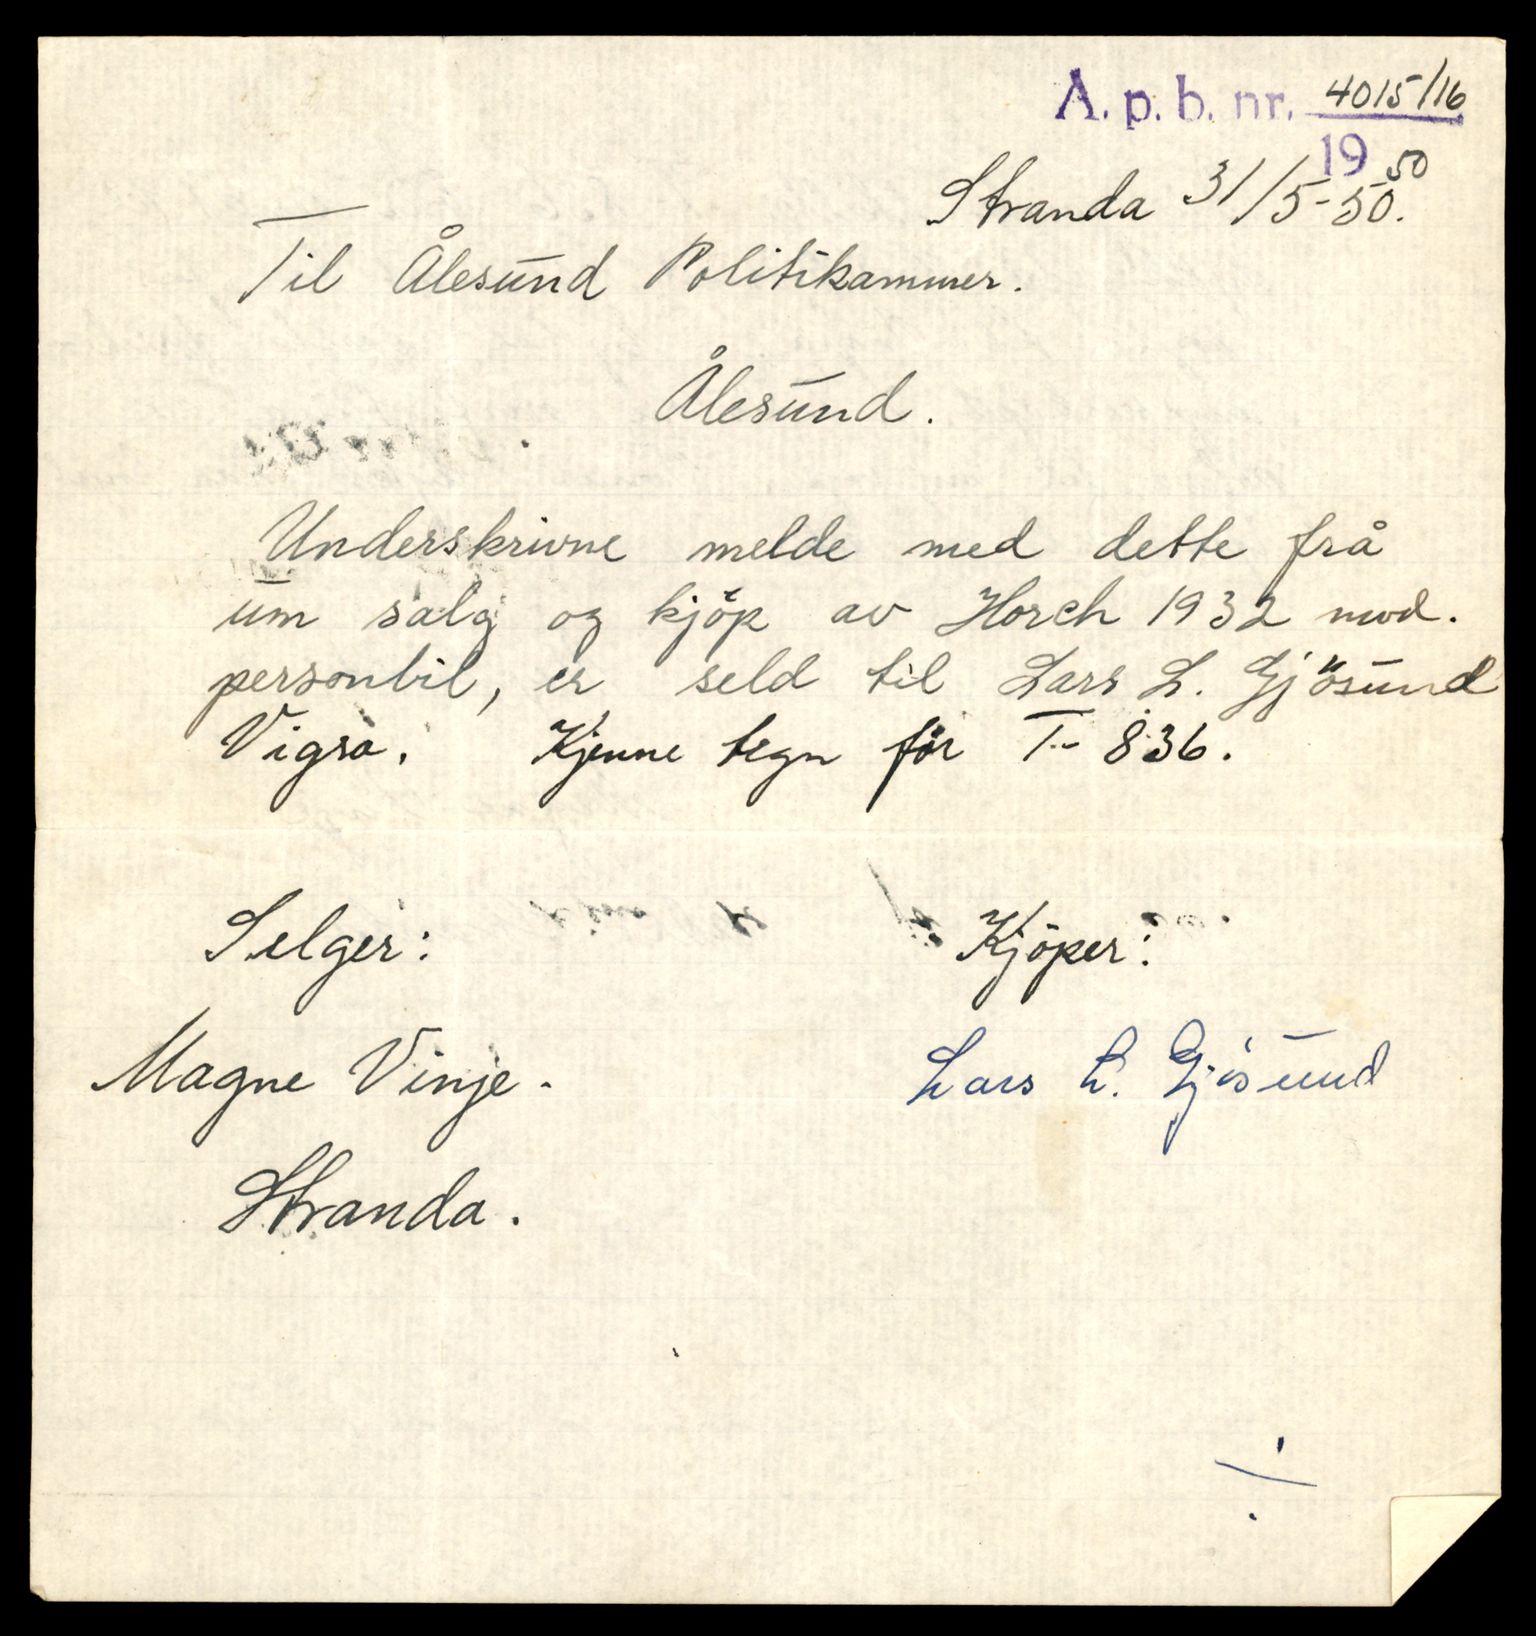 A. p. b. nr. 4015/16
1950
Stranda 31/5-50.
Til Ålesund Politikammer.
Ålesund.
Underskrivne melde med dette frå
um salg og kjöp av Horch 1932 mod.
personbil, er seld til Lars L. Gjösund
Vigra. Kjenne tegn för T- 836.
Selger: Kjöper:
Magne Vinje. Lars L. Gjösund
Stranda.